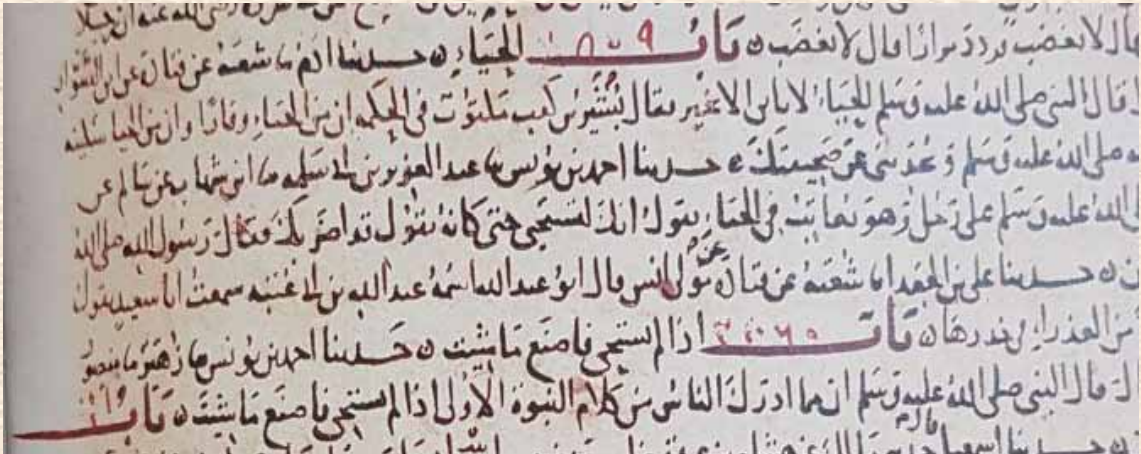 رضى الله عنه ان رجلا
قال لا تغضب فردد مرارا قال لا تغضب ن باب الحياء ن حدثنا ادم نا شعبة عن قتادة عن ابى السوار
قال النبى صلى الله عليه وسلم الحياء لا ياتى الا بخير فقال بشير بن كعب مكتوب فى الحكمة ان من الحياء وقارا وان من الحياء سكينة
صلى الله عليه وسلم وتحدثنى عن صحيفتك ن حدثنا احمد بن يونس نا عبد العزيز بن ابى سلمة نا ابن شهاب عن سالم عن
الله عليه وسلم على رجل وهو يعاتب فى الحياء يقول انك لتستحيى حتى كانه يقول قد اضر بك فقال رسول الله صلى الله
ن حدثنا على بن الجعد انا شعبة عن قتادة عن مولى انس قال ابو عبد الله اسمه عبد الله بن ابى عتبة سمعت ابا سعيد يقول
من العذراء فى خدرها ن باب اذا لم تستحى فاصنع ما شئت ن حدثنا احمد بن يونس نا زهير نا منصور
قال قال النبى صلى الله عليه وسلم ان مما ادرك الناس من كلام النبوة الاولى اذا لم تستحى فاصنع ما شئت ن باب
ن حدثنا اسمعيل